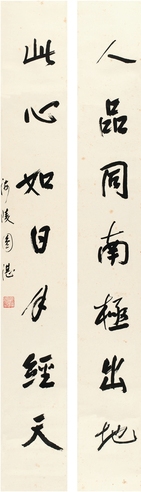 人品同南極出地
此心如日月經天
陵 湛